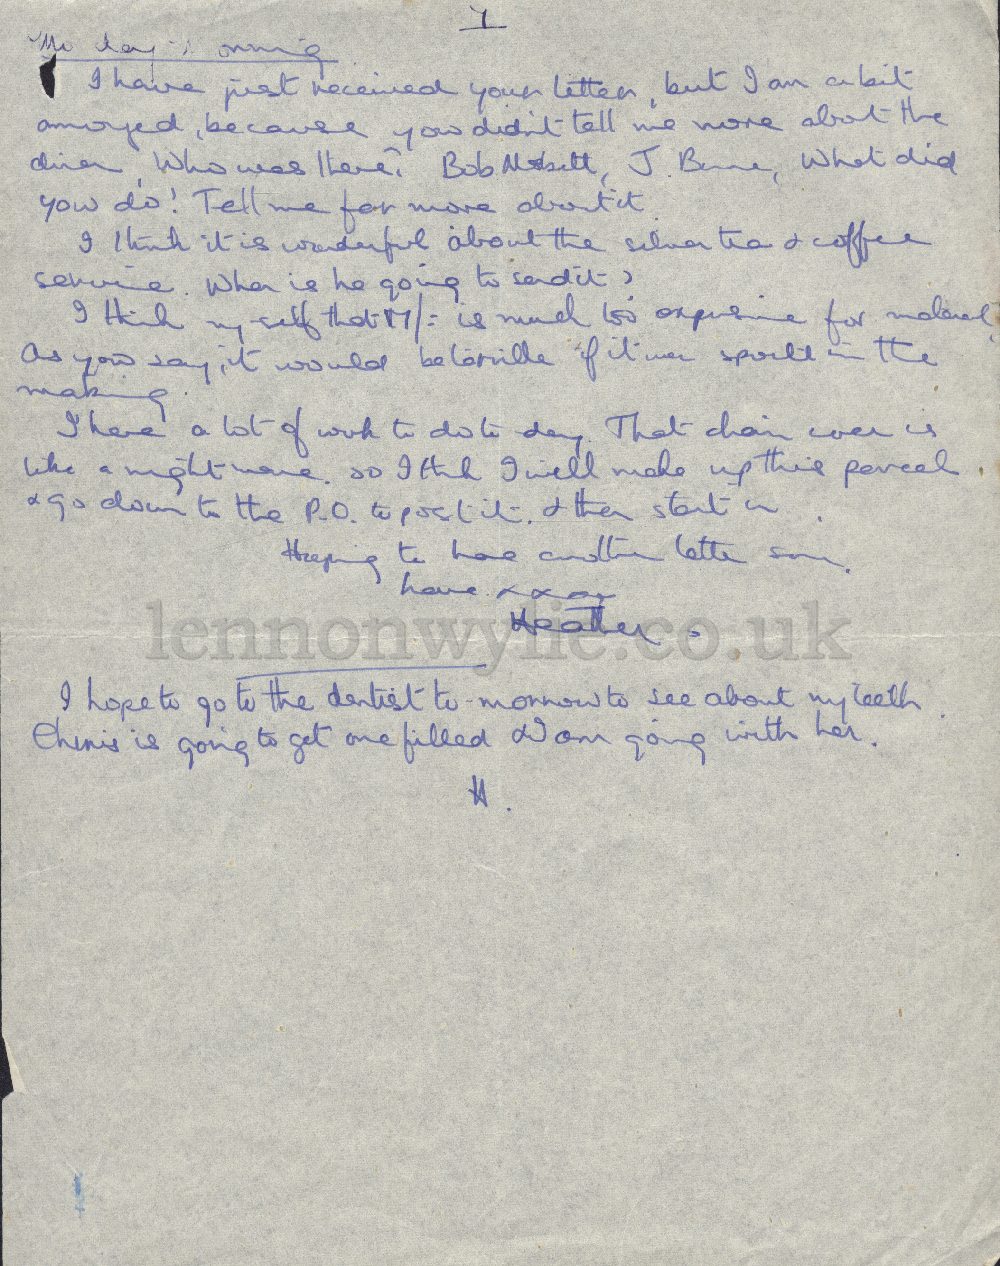 7
I have just received your letter, but I am a bit
annoyed, because you didn't tell me more about the
diner, Who was there? Bob Nesbitt, J. What did
you do! Tell me far more about it.
I think it is wonderful about the silver tea & coffee
service. When is he going to send it?
I think myself that is much too expensive for material,
As you say, it would be terrible if it were spoilt in the
making.
I have a lot of work to do to-day. That chair cover is
like a nightmare. so I think I will make up this parcel
& go down to the P.O. to post it. & then start in.
Hoping to have another letter soon.
love xxxx
Heather.
lennonwylie.co.uk
I hope to go to the dentist to-morrow to see about my teeth.
Chris is going to get one filled & I am going with her.
H.